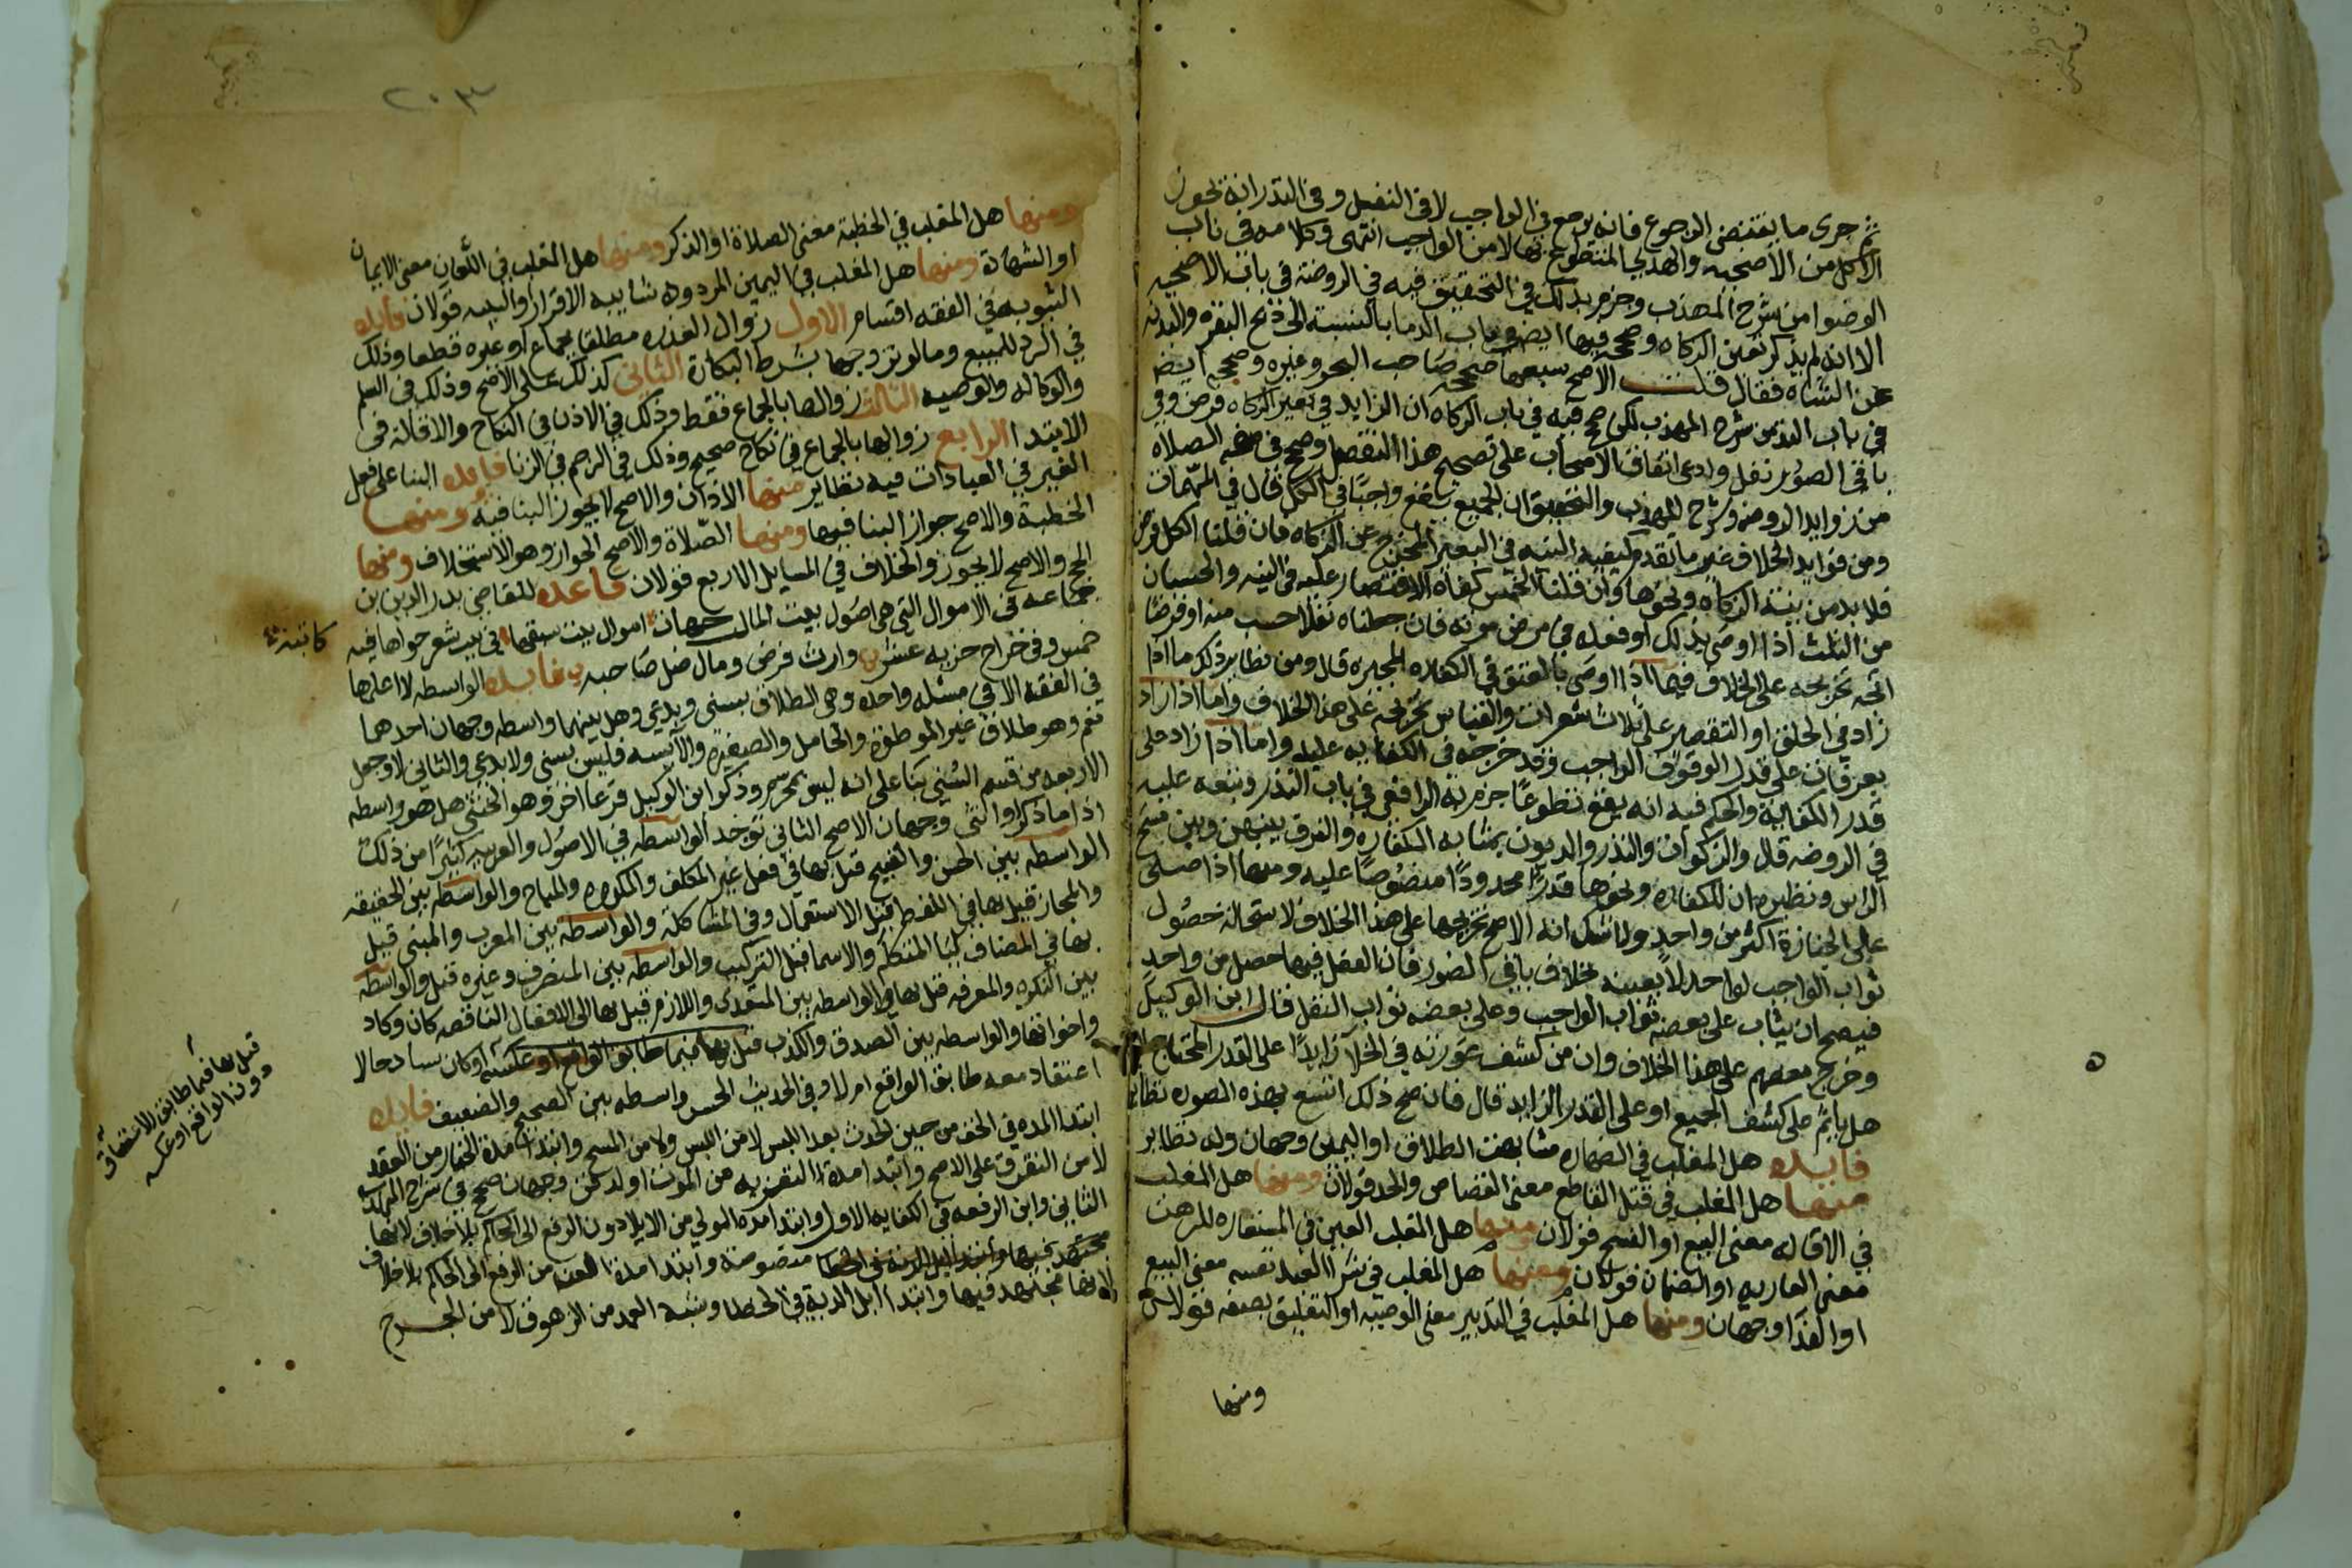 ثم جرى ما يقتضى الرجوع فانه يرجع في الواجب لا في النفل وفي القدر انه يجوز
الاكل من الاضحيه والهدي المتطوع بها لا من الواجب انتهى وكلامه في باب
الوضوء من شرح المهذب وجزم بذلك في التحقيق فيه في الروضة في باب الاضحيه
الا انه لم يذكر بعير الزكاه وصحح فيها ايضا في باب الدما بالنسبة الى ذبح البقره والبدنه
عن الشاه فقال قلت الاصح سبعها صححه صاحب البحر وغيره وصححه ايضا
في باب النذر من شرح المهذب لكن صحح فيه في باب الزكاه ان الزايد في بعير الزكاه فرض وفي
باقي الصور نفل وادعى اتفاق الاصحاب على تصحيح هذا التفصيل وصحح في صفه الصلاه
من زوايد الروضه وشرح المهذب والتحقيق ان الجميع يقع واجبا في الكل قال في المهمات
ومن فوايد الخلاف غير ما تقدم كيفيه النيه في البعير المخرج عن الزكاه فان قلنا الكل فرض
فلا بد من نية الزكاه ونحوها وان قلنا الخمس كفاه الاقتصار عليه في النيه والحسبان
من الثلث اذا اوصى بذلك او فعله في مرض موته فان جعلناه نفلا حسب منه او فرضا
اتجه تخريجه على الخلاف فيما اذا اوصى بالعتق في الكفاره المخيره قال ومن نظاير ذلك ما اذا
زاد في الحلق او التقصير على ثلاث شعرات والقياس تخريجه على هذا الخلاف واما اذا زاد
بعرفات على قدر الوقوف الواجب وقد خرجه في الكفايه عليه واما اذا زاد على
قدر الكفاية والحكم فيه انه يقع تطوعا جزم به الرافعي في باب النذر وتبعه عليه
في الروضه قال والزكوات والنذر والديون بمثابه الكفاره والفرق بينهن وبين مسح
الراس ونظيره ان للكفاره ونحوها قدرا محدودا منصوصا عليه ومنها اذا صلى
على الجنازة اكثر من واحد ولا شك انه الاصح تخريجها على هذا الخلاف لاستحالة حصول
ثواب الواجب لواحد لا بعينه بخلاف باقي الصور فان الفعل فيها حصل من واحد
فيصح ان يثاب على بعضه ثواب الواجب وعلى بعضه ثواب النفل قال ابن الوكيل
وخرج بعضهم على هذا الخلاف وان من كشف عورته في الخلا زايدا على القدر المحتاج اليه
هل ياثم على كشف الجميع او على القدر الزايد قال فان صح ذلك اتسع بهذه الصوره نظاير
فايده هل المغلب في الظهاره مشابهة الطلاق او اليمين وجهان وله نظاير
منها هل المغلب في قتل القاطع معنى القصاص والحد قولان ومنها هل المغلب
في الاقاله معنى البيع او الفسخ قولان ومنها هل المغلب العين في المستعاره للرهن
معنى العاريه او الضمان قولان ومنها هل المغلب في شرا العبد نفسه معنى البيع
او الفدا وجهان ومنها هل المغلب في التدبير معنى الوصيه او التعليق بصفه قولان
ومنها
٢٠٣
ومنها هل المغلب في الخطبة معنى الصلاة او الذكر ومنها هل المغلب في اللعان معنى الايمان
او الشهادة ومنها هل المغلب في اليمين المردوده شايبه الاقرار والبينه قولان فايده
الثيوبه في الفقه اقسام الاول زوال العذره مطلقا بجماع او غيره قطعا وذلك
في الرد للمبيع وما لو تزوجها بشرط البكارة الثاني كذلك على الاصح وذلك في السلم
والوكاله والوصيه الثالث زوالها بالجماع فقط وذلك في الاذن في النكاح والاقامة في
الابتدا الرابع زوالها بالجماع في نكاح صحيح وذلك في الرجم في الزنا فايده البنا على فعل
الغير في العبادات فيه نظاير منها الاذان والاصح لا يجوز البنا فيه ومنها
الخطبة والاصح جواز البنا فيها ومنها الصلاة والاصح الجواز وهو الاستخلاف ومنها
الحج والاصح لا يجوز والخلاف في المسايل الاربع قولان قاعده للقاضي بدر الدين بن
جماعه في الاموال التي هي اصول بيت المال جهات اموال بيت سقتها في بيت شعر حواها فيه
كاتبه
خمس وفي خراج جزيه عشر وارث فرض ومال ضل صاحبه فايده الواسطه لا اعلمها
في الفقه الا في مسئله واحده وهي الطلاق سني وبدعي وهل بينهما واسطه وجهان احدهما
نعم وهو طلاق غير الموطؤة والحامل والصغيره والآيسه فليس بسني ولا بدعي والثاني لا وجعل
الاربعه من قسم السني بنا على انه ليس بمحرم وذكر ابن الوكيل فرعا اخر وهو الخنثى هل هو واسطه
اذ اما ذكر او انثى وجهان الاصح الثاني توجد الواسطه في الاصول والعربيه كثيرا من ذلك
الواسطه بين الحسن والقبيح قيل بها في فعل غير المكلف والمكروه والمباح والواسطه بين الحقيقه
والمجاز قيل بها في اللفظ قبل الاستعمال وفي المشاكلة والواسطه بين المعرب والمبني قيل
بها في المضاف لليا المتكلم والاسما قبل التركيب والواسطه بين المنصرف وغيره قيل والواسطه
بين النكره والمعرفه قيل بها والواسطه بين المتعدي واللازم قيل بها في الافعال الناقصه كان وكاد
واخواتها والواسطه بين الصدق والكذب قيل بها فيما طابق الواقع او عكسه او كان ساذجا لا
قيل بها فيما طابق الاعتقاد
دون الواقع او عكسه
اعتقاد معه طابق الواقع ام لا وفي الحديث الحسن واسطه بين الصحيح والضعيف فايده
ابتدا المده في الخف من حين الحدث بعد اللبس لا من اللبس ولا من المسح وابتدا مدة الخيار من العقد
لا من التفرق على الاصح وابتدا مدة التعزيه من الموت او الدفن وجهان صحح في شرح المهذب
الثاني وابن الرفعه في الكفايه الاول وابتدا مده المولي من الايلا دون الرفع الى الحاكم بلا خلاف لانها
منصوصة وابتدا مدة العنه من الرفع الى الحاكم بلا خلاف
لانها مجتهد فيها وابتدا ابل الدية في الخطا وشبه العمد من الزهوق لا من الجرح